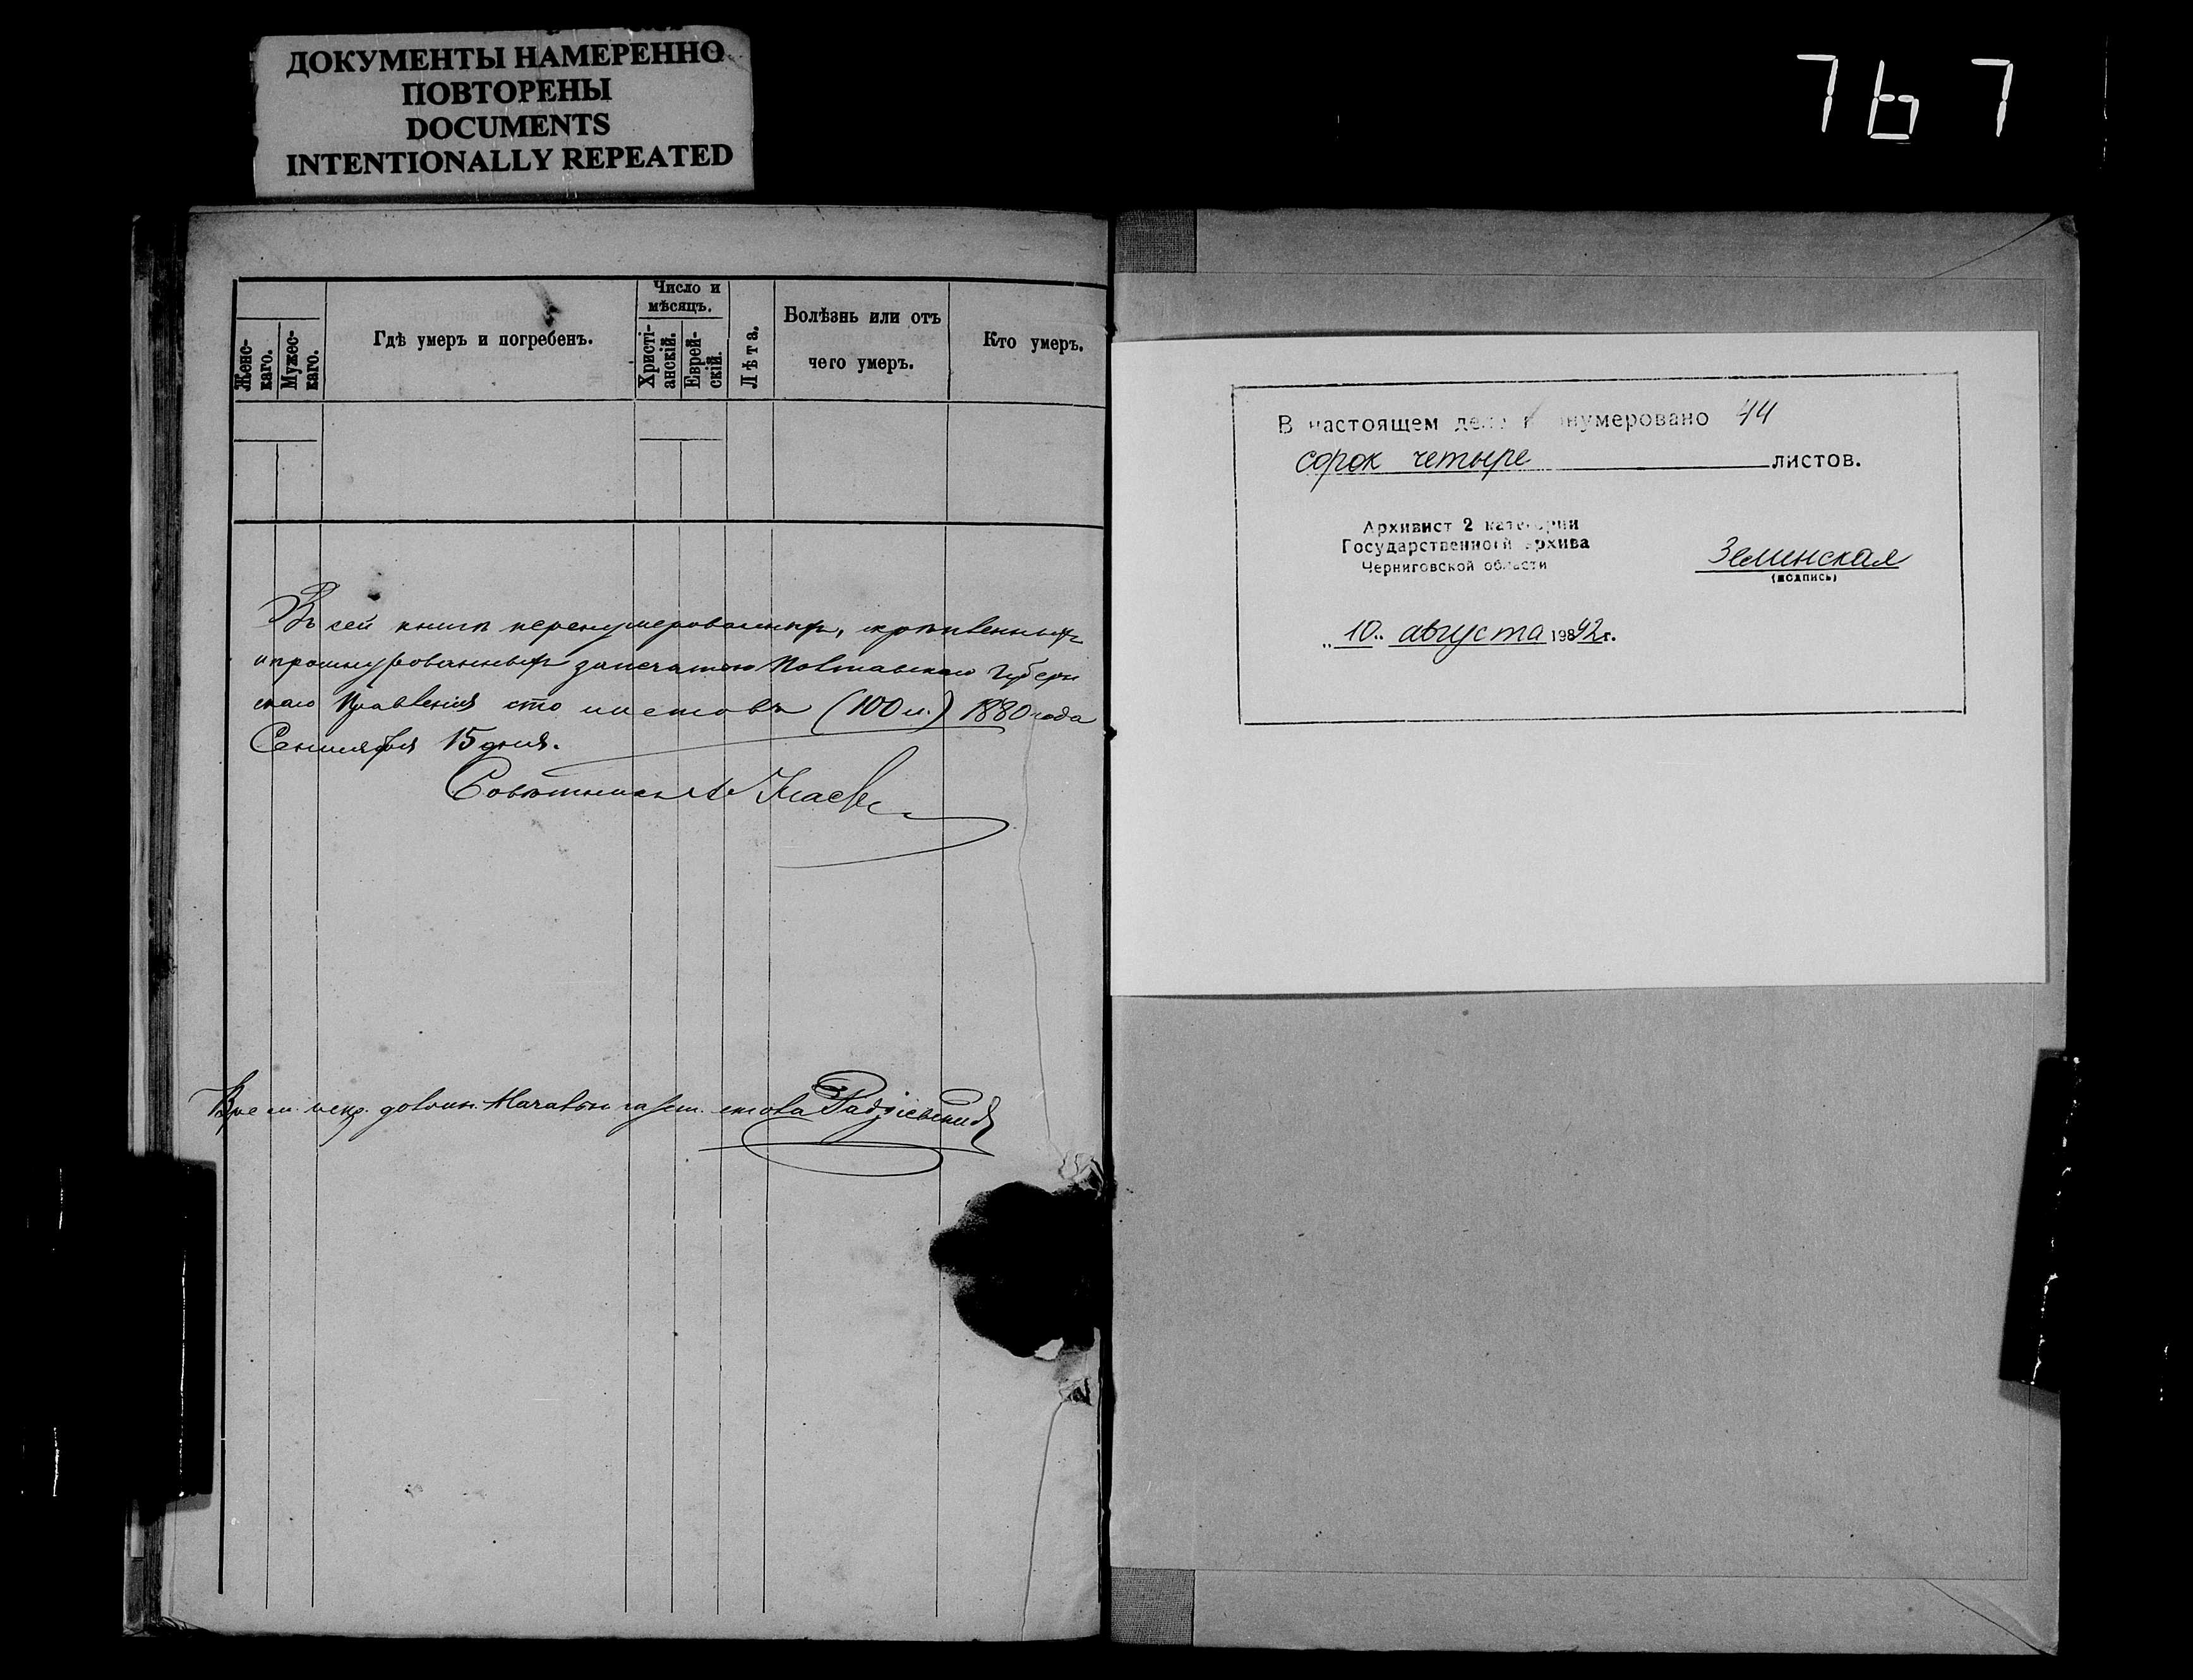 ДОКУМЕНТЫ НАМЕРЕННО
ПОВТОРЕНЫ
DOCUMENTS
INTENTIONALLY REPEATED
767
Женс-
каго.
Мужес-
каго.
Гдѣ умеръ и погребенъ.
Число и
мѣсяцъ.
Христі-
анскій.
Еврей-
скій.
Лѣта.
Болѣзнь или отъ
чего умеръ.
Кто умеръ.
Въ сей книгѣ перенумерованныхъ, скрѣпленныхъ
и прошнурованныхъ за печатью Полтавскаго Губерн
скаго Правленія сто листовъ (100 л.) 1880 года
Сентября 15 дня.
Совѣтникъ
Врем. испр. должн. стола Радзіевскій
В настоящем деле нумеровано 44
сорок четыре листов.
Архивист 2 категории
Государственного архива
Черниговской области
Зелинская
(подпись)
„10" августа 1992 г.